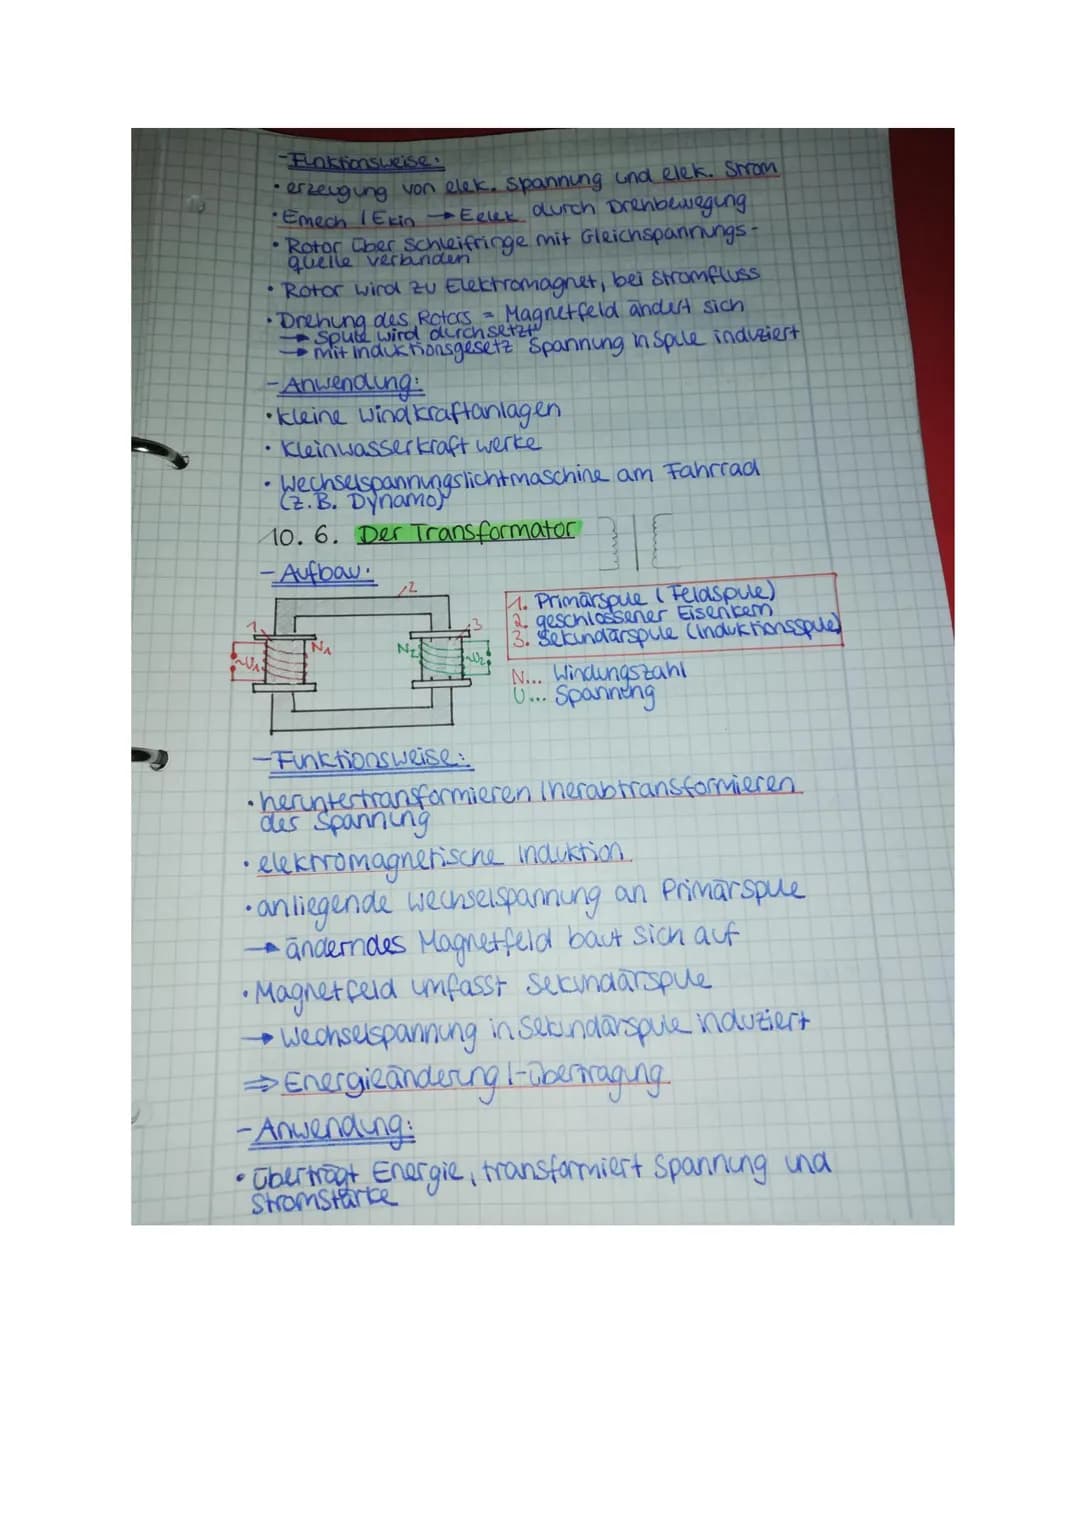 - Funktionsweise:
• erzeugung von elek. Spannung und elek. Strom
• Emech / Ekin → Eelek durch Drehbewegung
• Rotor über Schleifringe mit Gleichspannungs-
quelle verbunden
• Rotor wird zu Elektromagnet, bei Stromfluss
• Drehung des Rotors = Magnetfeld ändert sich
→ Spule wird durchsetzt
→ mit Induktionsgesetz Spannung in Spule induziert
- Anwendung:
• kleine Windkraftanlagen
• Kleinwasserkraftwerke
• Wechselspannungslichtmaschine am Fahrrad
(z.B. Dynamo)
10.6. Der Transformator
- Aufbau:
2
1. Primärspule (Feldspule)
2. geschlossener Eisenkern
3. Sekundärspule (Induktionsspule)
1 N1 N2 3
~U1 ~U2
N... Windungszahl
U... Spannung
- Funktionsweise:
• heruntertransformieren / herabtransformieren
der Spannung
• elektromagnetische Induktion
• anliegende Wechselspannung an Primärspule
→ änderndes Magnetfeld baut sich auf
• Magnetfeld umfasst Sekundärspule
→ Wechselspannung in Sekundärspule induziert
⇒ Energieänderung / -übertragung
- Anwendung:
• überträgt Energie, transformiert Spannung und
Stromstärke